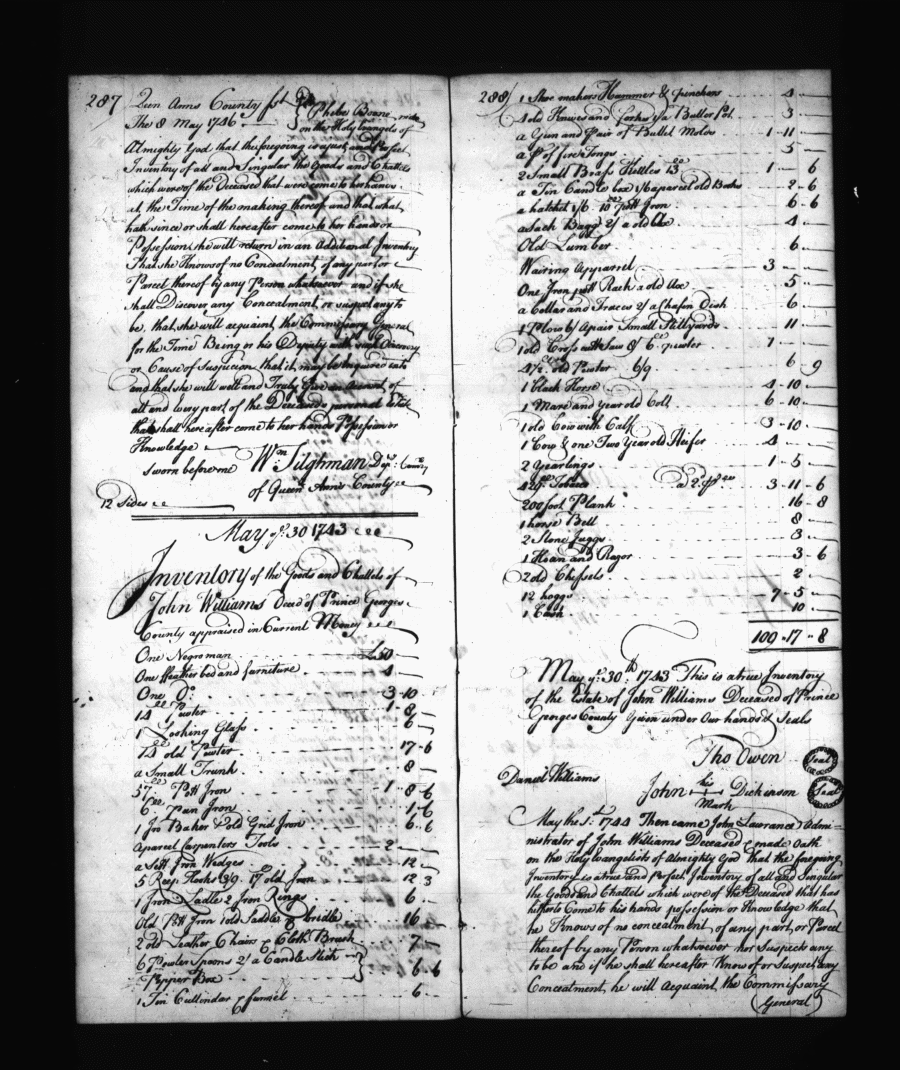 287
Queen Anns County sst
The 8 May 1746
Phebe Bourne made
on the Holy Evangels of
Almighty God that the foregoing is a just and Perfect
Inventory of all and Singular the Goods and Chattels
which were of the Deceased that were come to her hands
at the Time of the making thereof and that what
hath since or shall hereafter come to her hands or
Possession she will return in an Additional Inventory
That she Knows of no Concealment of any part or
Parcel thereof by any Person whatsoever and if she
shall Discover any Concealment or suspect any to
be, that she will acquaint the Commissary General
for the Time Being or his Deputy with such Discovery
or Cause of Suspicion that it may be Inquired into
and that she will well and Truly Give an Account of
all and Every part of the Deceaseds personal Estate
that shall hereafter come to her hands Possession or
Knowledge
sworn before me Wm Tilghman Dep. Comry
of Queen Anns County
12 Sides
May ye 30 1743
Inventory of the Goods and Chattels of
John Williams Deced of Prince Georges
County appraised in Current Money
One Negro man £50
One ffeather bed and furniture 4
One Do 3 10
14 Pewter 1 8
1 Looking Glass 6
old Pewter 17 6
a Small Trunk 8
57 Pott Iron 1 8 6
6 pan Iron 1 6
old Grid Iron 6 6
a parcel Carpenters Tools 2
a sett Iron Wedges 12
5 Reap Hooks 3/9 17 old Iron 12 3
1 Iron Ladle 2 Iron Rings 6
Old Pot Iron 1 old Saddle & bridle 16
2 old Leather Chairs & Cloth Brush 7
6 Pewter Spoons 2/ a Candle Stick
Pepper Box 6 6
1 Tin Cullender & funnel 6
288
1 Shoe makers Hammer & pinchers 4
4 old Knives and forks & a Butter Pot 3
a Gun and Pair of Bullet Molds 1 11
a Pr of fire Tongs 5
2 Small Brass Kettles 13 1 6
a Tin Candle box 1/6 a parcel old Books 2 6
a hatchet 1/6 10 Pott Iron 6 6
a Sack Bagg 2/ a old Axe 4
Old Lumber 6
Wairing Apparrel 3
One Iron pott Rack a old Axe 5
a Collar and Traces 2/ a Chafin Dish 6
1 Plow 6/ a pair Small Stillyards 11
1 old Cross cutt Saw 8/ 6 pewter 7
old Pewter 6/9 6 9
1 black Horse 4 10
1 Mare and year old Colt 6 10
1 old Cow with Calf 3 10
1 Cow & one Two Year old Heifer 4
2 Yearlings 1 5
Tobacco 3 11 6
200 foot Plank 16 8
1 horse Bell 8
2 Stone Juggs 3
1 Hoan and Razor 3 6
2 old Chissels 2
12 hoggs 7 5
1 Cask 10
109 17 8
May ye 30th 1743 This is a true Inventory
of the Estate of John Williams Deceased of Prince
Georges County Given under Our hands & Seals
Tho Owen Seal
Daniel Williams
John his Mark Dickinson Seal
May the 1st 1744 Then came John Lawrance Admi-
nistrator of John Williams Deceased & made Oath
on the Holy Evangelists of Almighty God that the foregoing
Inventory is a true and Perfect Inventory of all and Singular
the Goods and Chattels which were of the Deceased that has
hitherto Come to his hands possession or Knowledge that
he Knows of no concealment of any part or Parcel
thereof by any Person whatsoever nor Suspects any
to be and if he shall hereafter Know of or Suspect any
Concealment, he will Acquaint the Commissary
General